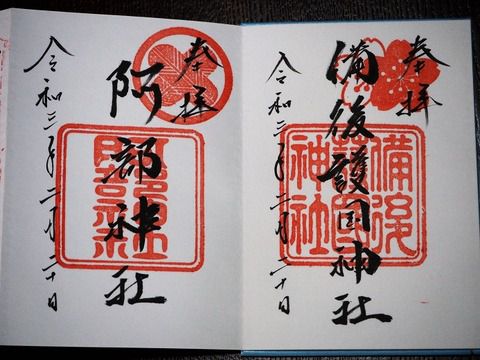 奉拝
備後護国神社
備後
護国
神社
令和三年二月二十日
奉拝
阿部神社
令和三年二月二十日